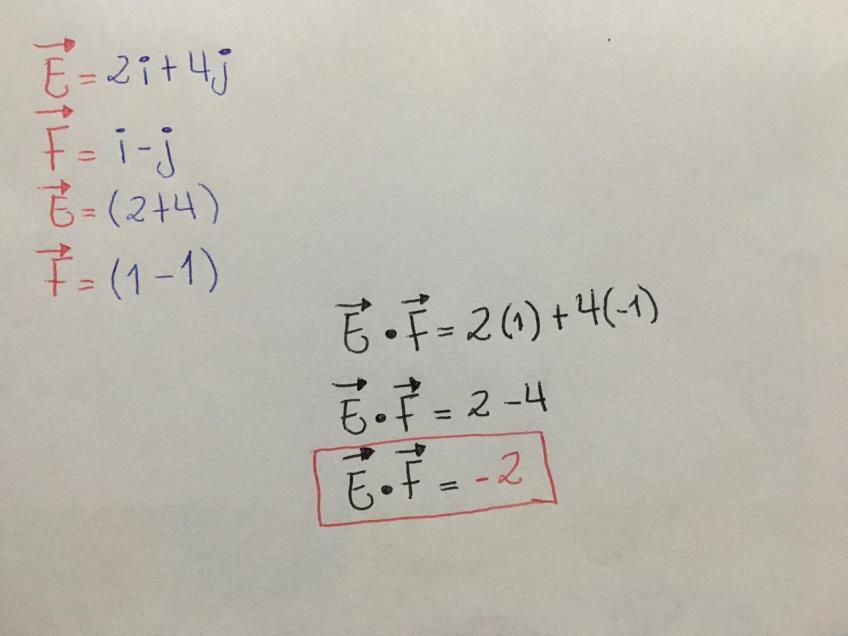 E⃗ = 2i + 4j
F⃗ = i - j
E⃗ = (2+4)
F⃗ = (1 - 1)
E⃗ • F⃗ = 2(1) + 4(-1)
E⃗ • F⃗ = 2 - 4
E⃗ • F⃗ = -2